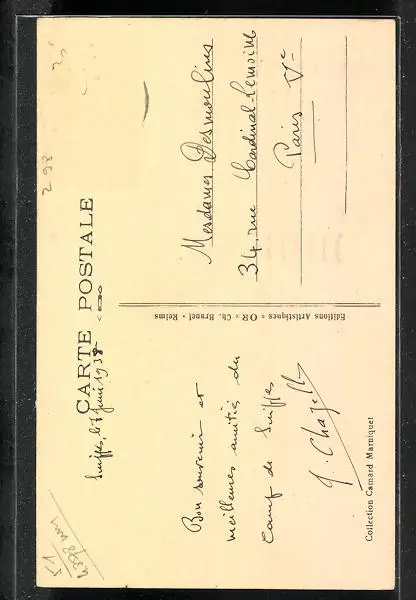 CARTE POSTALE
Suippes, le 7 juin 1938
Bon souvenir et
meilleures amitiés du
camp de Suippes
J. Chazelle
Collection Camard Marniquet
Editions Artistiques « OR » Ch. Brunel - Reims
Mesdames Desmoulins
34, rue Cardinal-Lemoine
Paris Ve
298